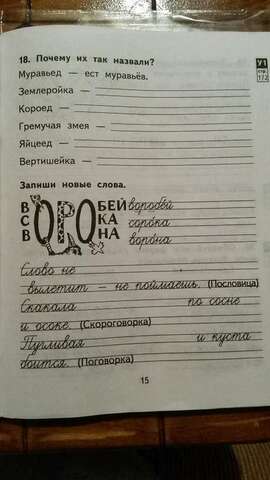 18. Почему их так назвали?
У1
стр.
112
Муравьед — ест муравьёв.
Землеройка —
Короед —
Гремучая змея —
Яйцеед —
Вертишейка —
Запиши новые слова.
В ОРО БЕЙ воробей
С ОРО КА сорока
В ОРО НА ворона
Слово не
вылетит — не поймаешь. (Пословица)
Скакала по сосне
и осоке. (Скороговорка)
Пугливая и куста
боится. (Поговорка)
15